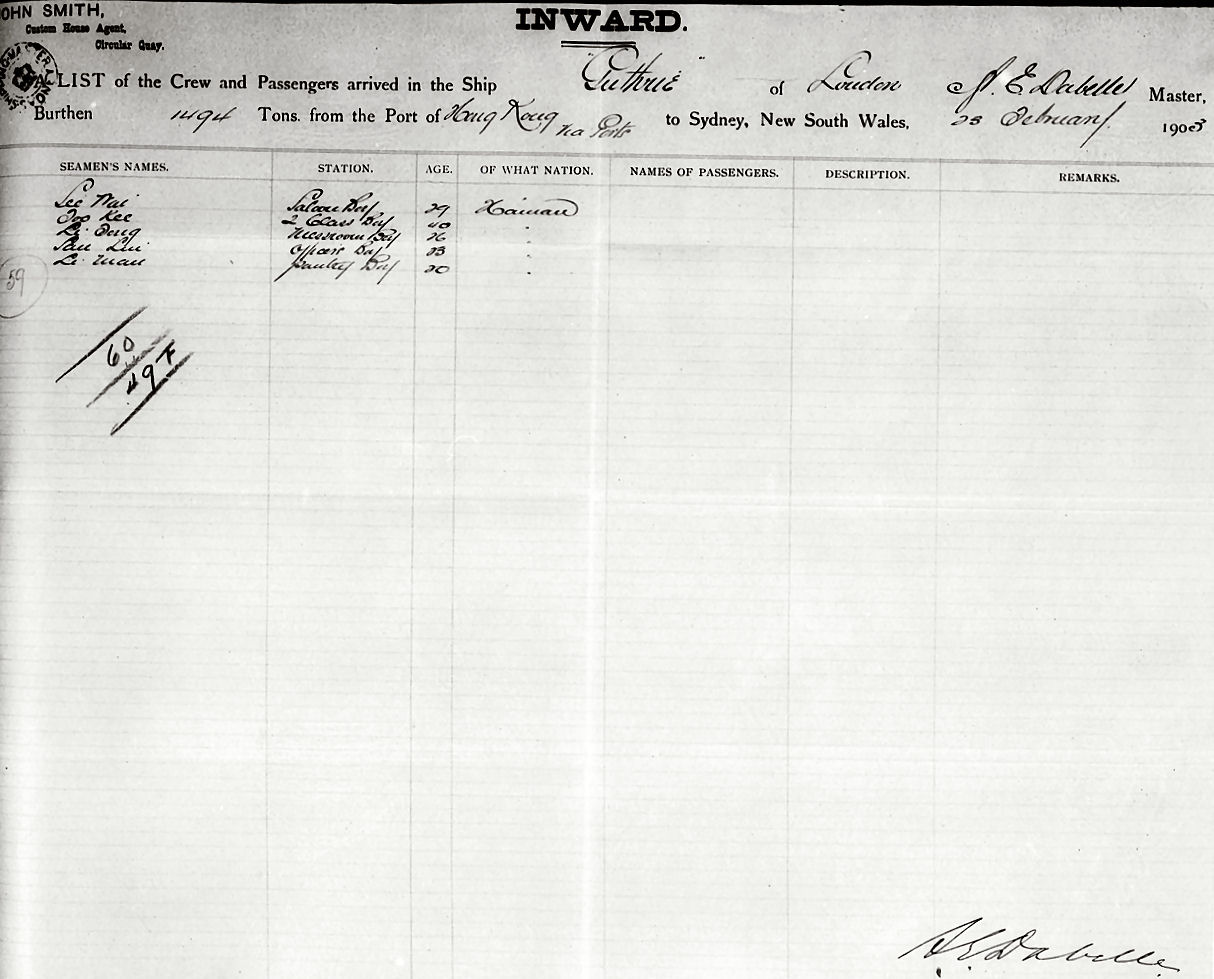 OHN SMITH,
Custom House Agent,
Circular Quay.
INWARD.
A LIST of the Crew and Passengers arrived in the Ship "Guthrie" of London J. E. Dabelle Master,
Burthen 1494 Tons. from the Port of Hong Kong via Ports to Sydney, New South Wales, 23 February 1903
SEAMEN'S NAMES. STATION. AGE. OF WHAT NATION. NAMES OF PASSENGERS. DESCRIPTION. REMARKS.
See Wai Saloon Boy 29 Hainan
Too Kee 2 Class Boy 40 "
Li Messroom Boy 26 "
Officers Boy "
Li Pantry Boy 20 "
59
60
49 F
Dabelle